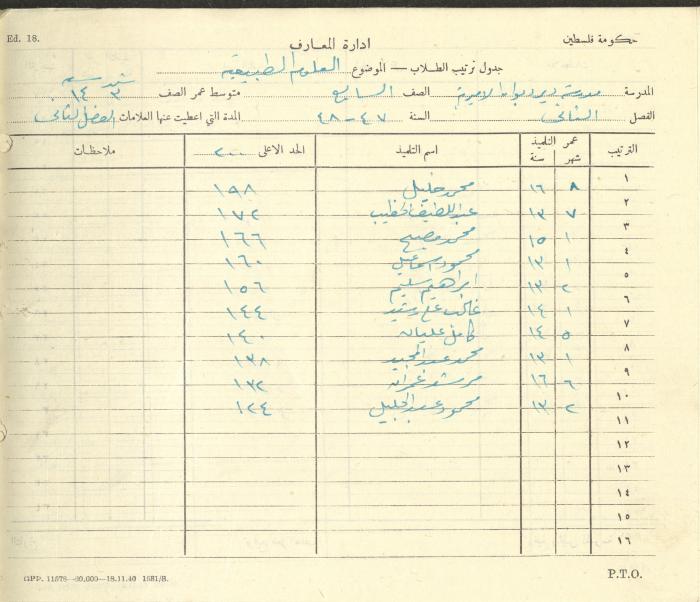 Ed. 18.
حكومة فلسطين
ادارة المعارف
جدول ترتيب الطلاب — الموضوع العلوم الطبيعية
المدرسة مدرسة ديرديوان الاميرية الصف السابع متوسط عمر الصف ٣ ١٤ شهر سنة
الفصل الثاني السنة ٤٧-٤٨ المدة التي اعطيت عنها العلامات الفصل الثاني
الترتيب عمر التلميذ شهر سنة اسم التلميذ الحد الاعلى ٢٠٠ ملاحظات
١ ٨ ١٦ محمد خليل ١٩٨
٢ ٧ ١٣ عبد اللطيف الخطيب ١٧٢
٣ ١ ١٥ محمد مصبح ١٦٦
٤ ١ ١٣ محمود اسماعيل ١٦٠
٥ ٢ ١٣ ابراهيم سليم ١٥٦
٦ ١ ١٤ غالب علي رشيد ١٤٤
٧ ٥ ١٤ كامل عليان ١٤٠
٨ ١ ١٣ محمد عبد المجيد ١٣٨
٩ ٦ ١٦ مرشد عمران ١٣٢
١٠ ٢ ١٣ محمود عبد الجليل ١٢٤
١١
١٢
١٣
١٤
١٥
١٦
GPP. 11578—20,000—18.11.40 1681/B.
P.T.O.